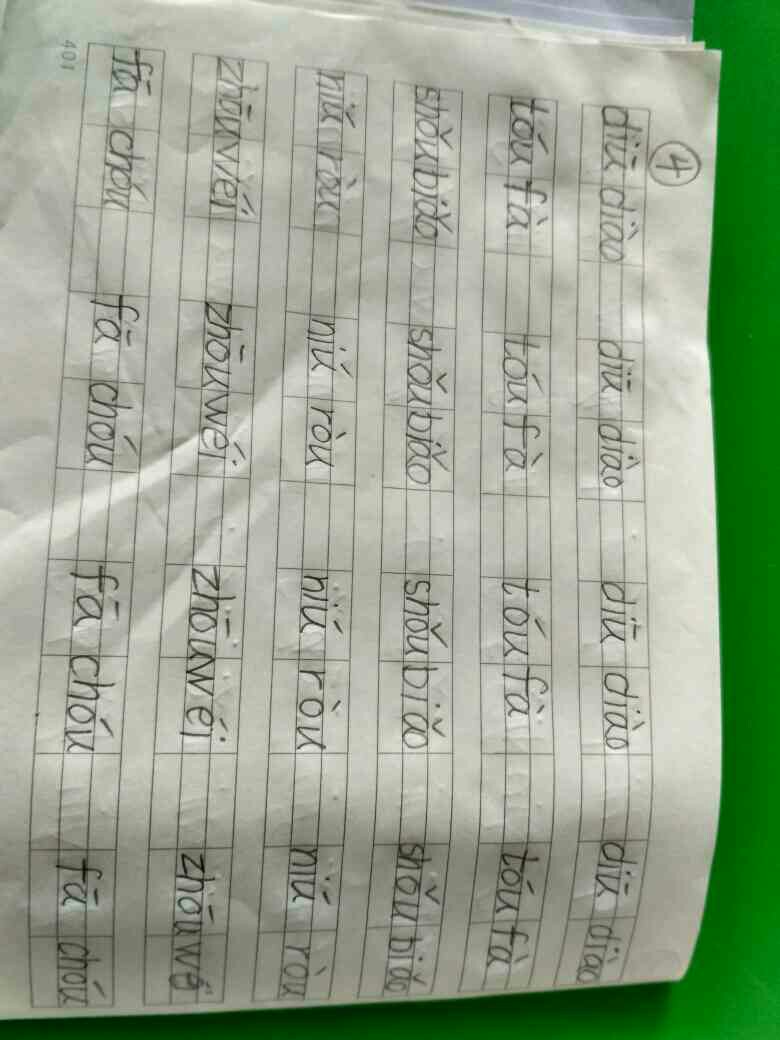 ④
diū diào diū diào diū diào diū diào
tóu fà tóu fà tóu fà tóu fà
shǒu biǎo shǒu biǎo shǒu biǎo shǒu biǎo
niú ròu niú ròu niú ròu niú ròu
zhōu wéi zhōu wéi zhōu wéi zhōu wé
fā chóu fā chóu fā chóu fā chóu
401